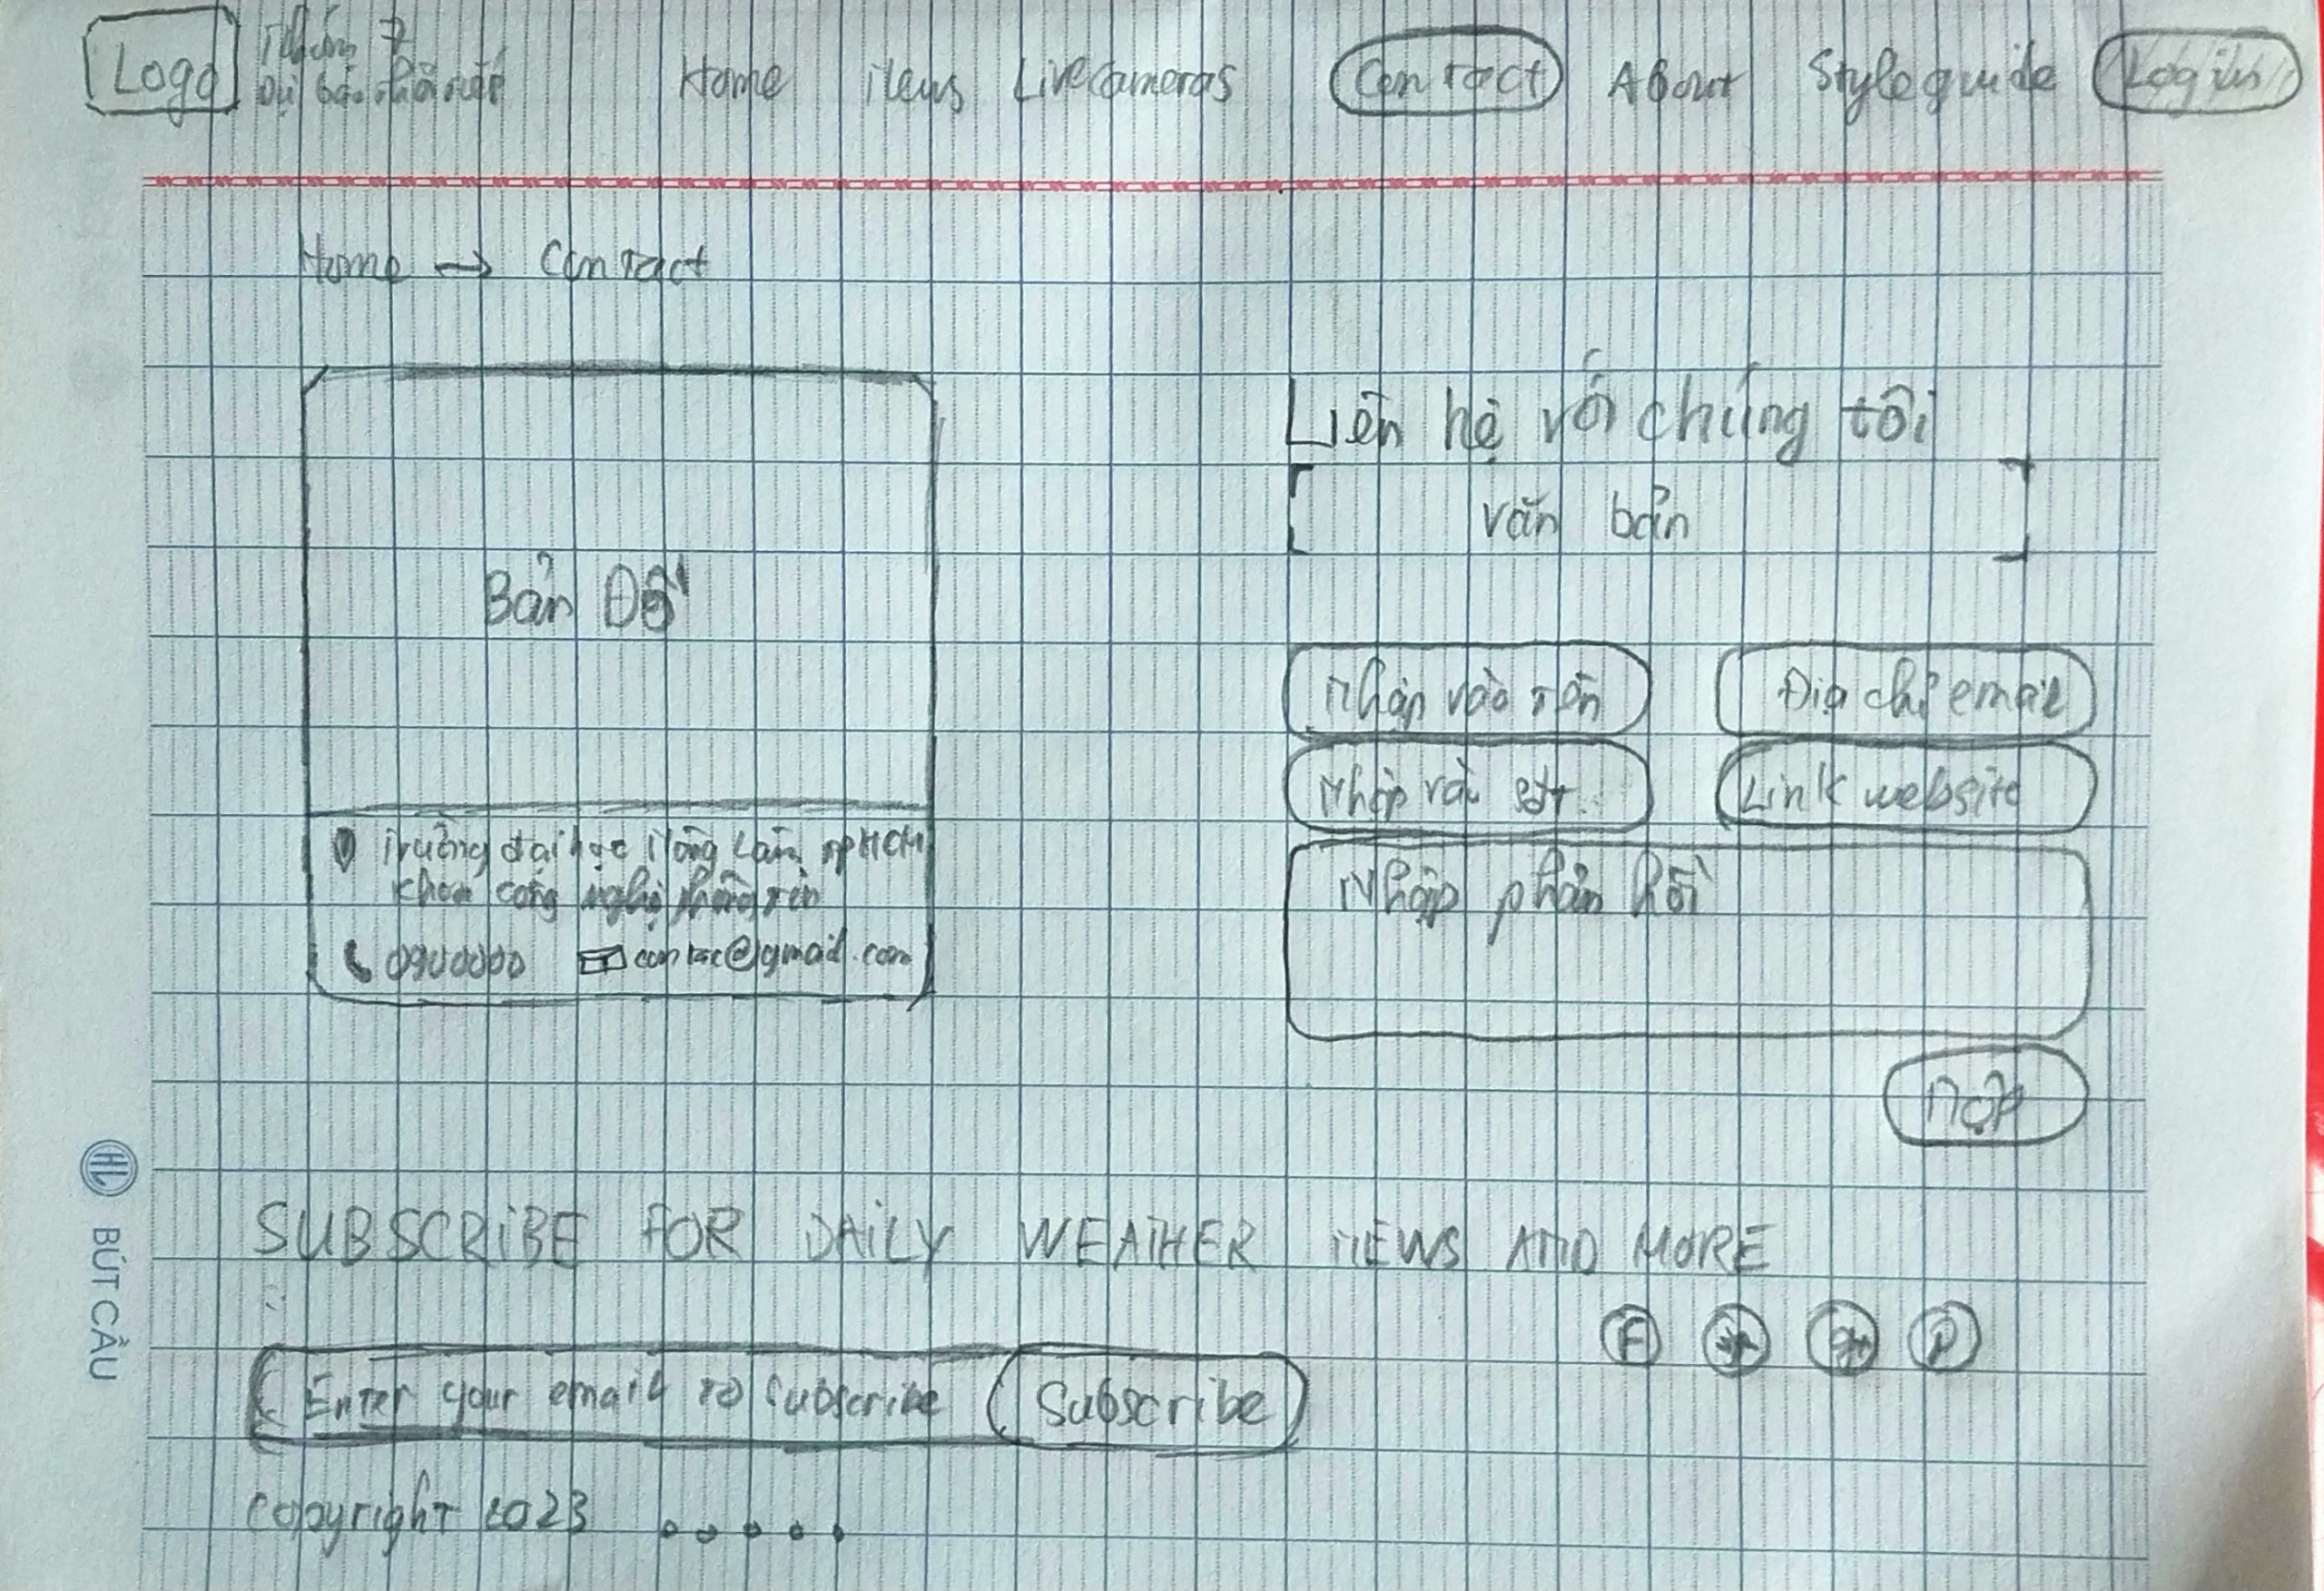 Logo
Nhóm 7
Dự báo thời tiết
Home News Live cameras Contact About Style guide Login
Home → Contact
Bản Đồ
Trường đại học Nông Lâm TPHCM
khoa công nghệ thông tin
0900000 contac@gmail.com
Liên hệ với chúng tôi
văn bản
Nhập vào tên
Địa chỉ email
Nhập vào sđt
Link website
Nhập phản hồi
Nộp
SUBSCRIBE FOR DAILY WEATHER NEWS AND MORE
F
P
Enter your email to subscribe
Subscribe
Copyright 2023 .....
HL BÚT CẦU